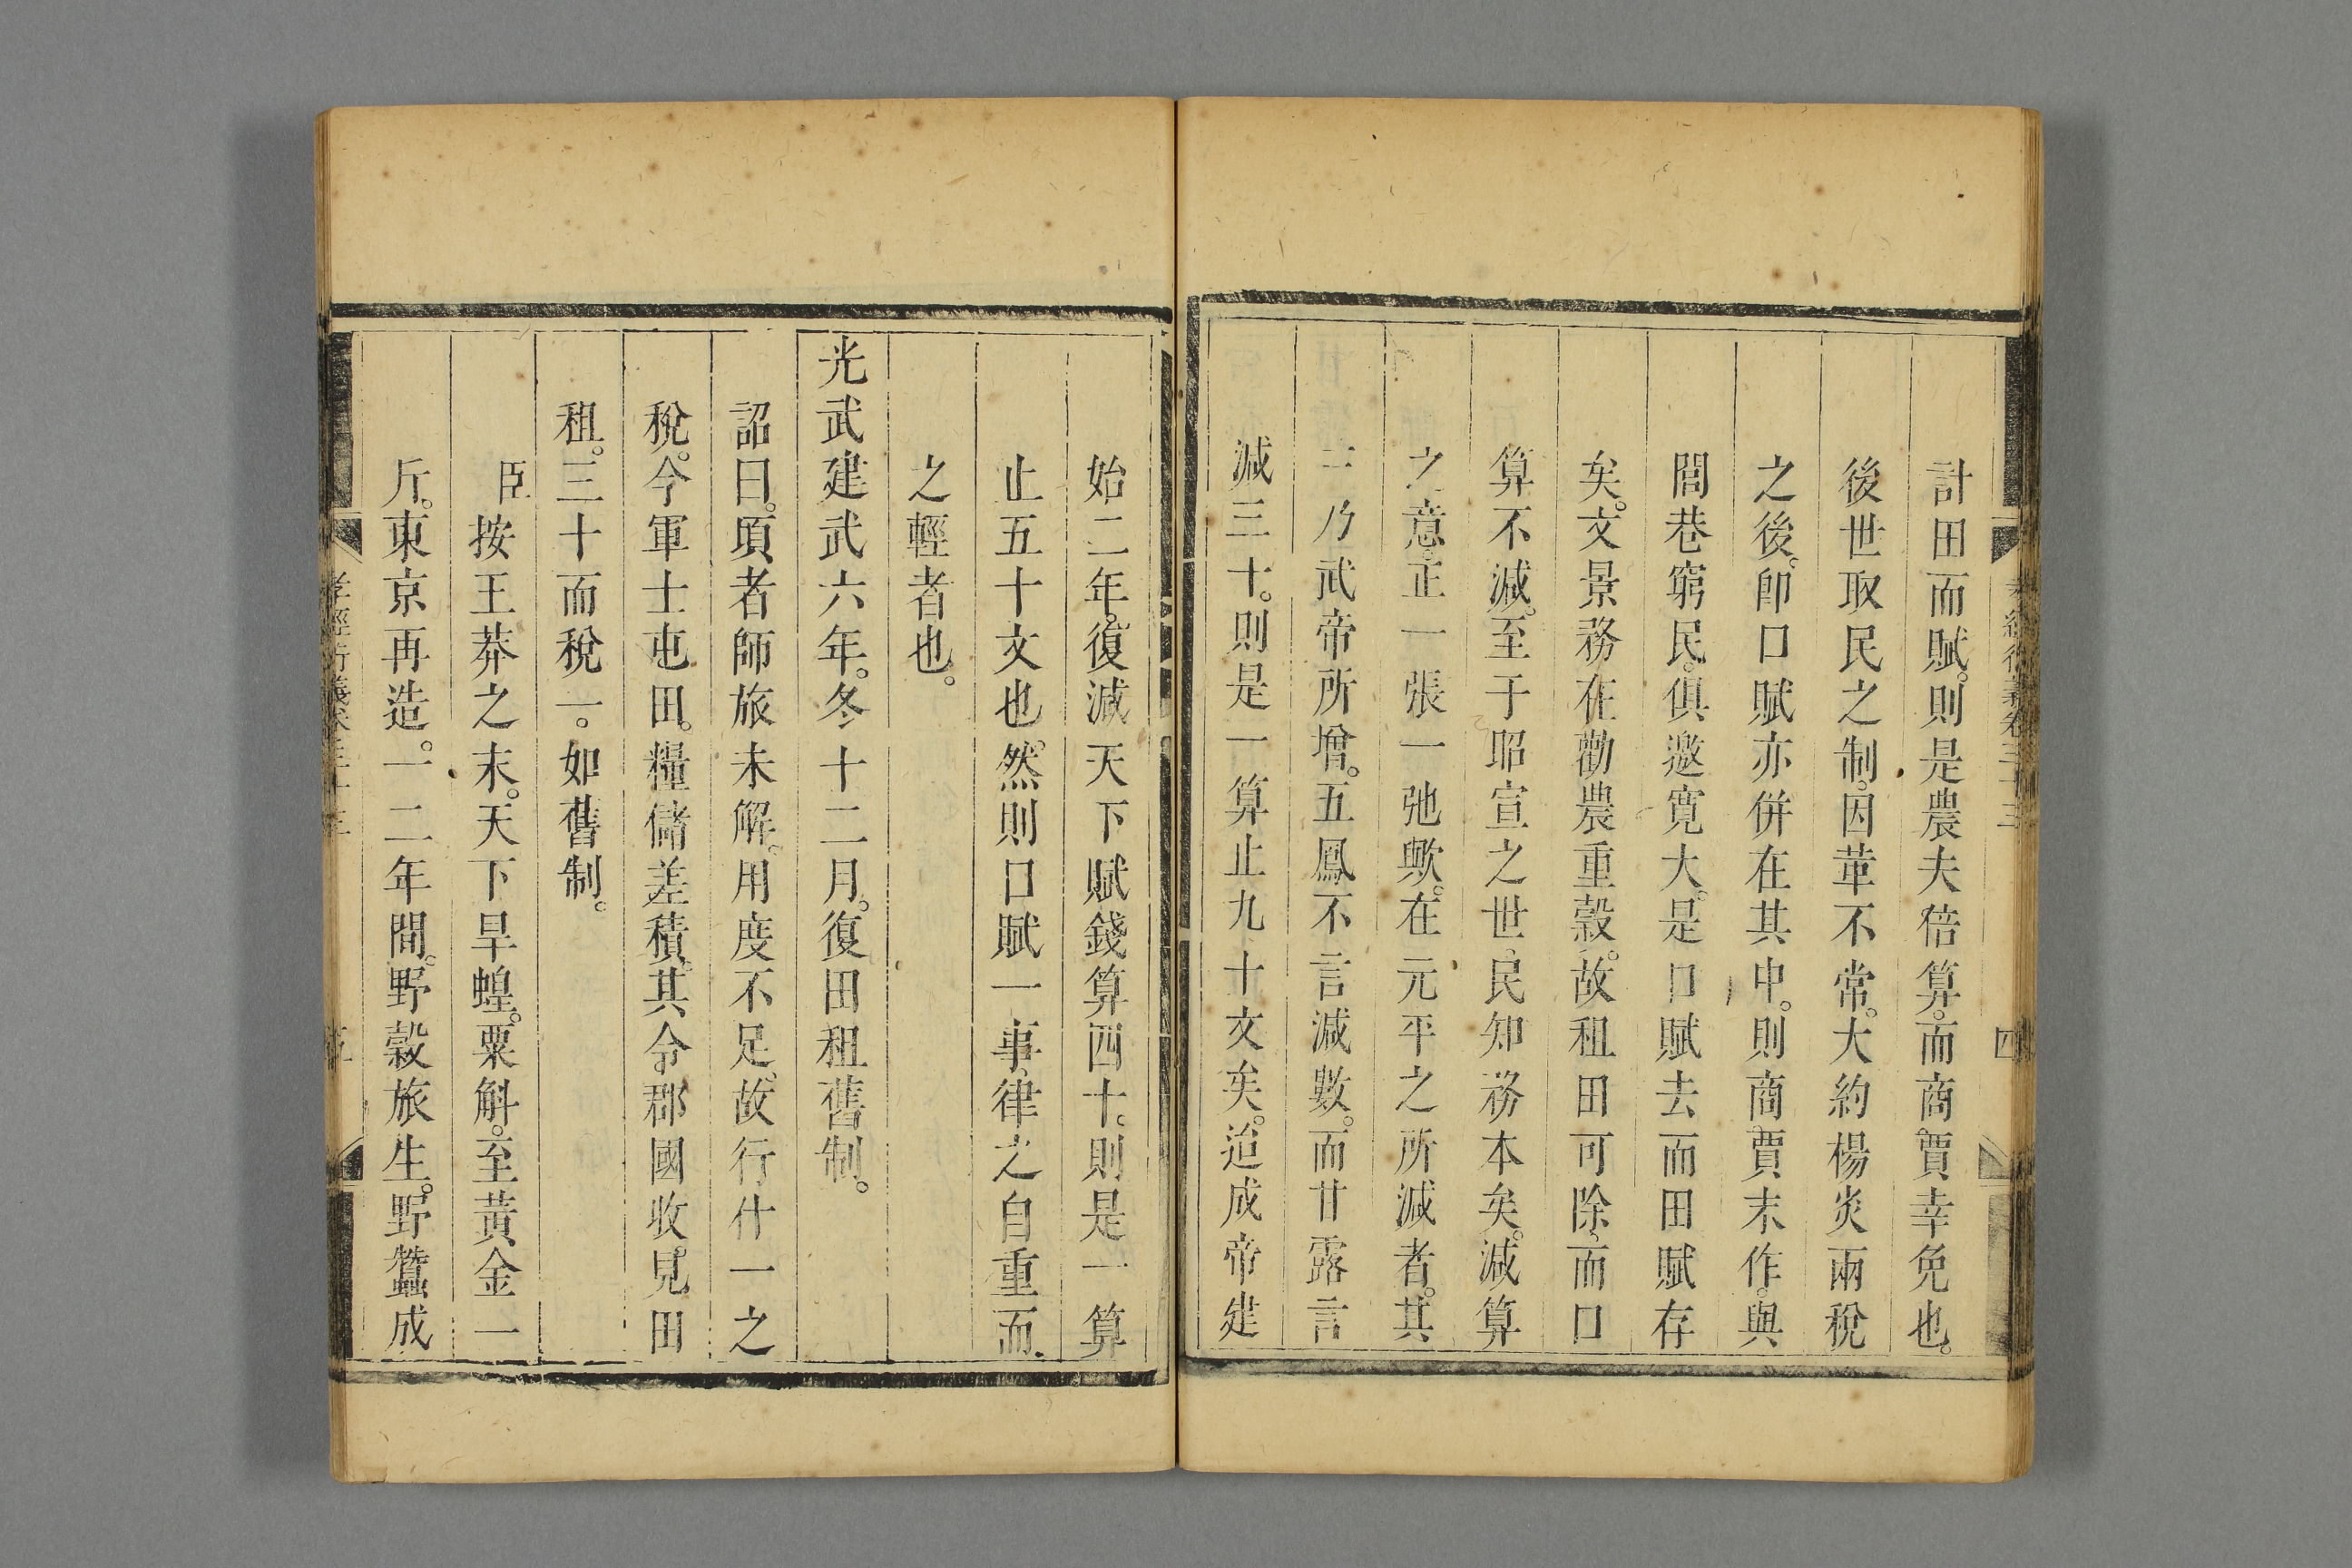 計田而賦。則是農夫倍算。而商賈幸免也。
後世取民之制。因革不常。大約楊炎兩稅
之後。卽口賦亦併在其中。則商賈末作。與
閭巷窮民。俱邀寬大。是口賦去而田賦存
矣。文景務在勸農重穀。故租田可除。而口
算不減。至于昭宣之世。民知務本矣。減算
之意。正一張一弛歟。在元平之所減者。其
二乃武帝所增。五鳳不言減數。而甘露言
減三十。則是一算止九十文矣。迨成帝建
始二年。復減天下賦錢算四十。則是一算
止五十文也。然則口賦一事。律之自重而
之輕者也。
光武建武六年。冬十二月。復田租舊制。
詔曰。頃者師旅未解。用度不足。故行什一之
稅。今軍士屯田。糧儲差積。其令郡國收見田
租。三十而稅一。如舊制。
臣按王莽之末。天下旱蝗。粟斛。至黃金一
斤。東京再造。一二年間。野穀旅生。野蠶成
孝經衍義卷三十三
四